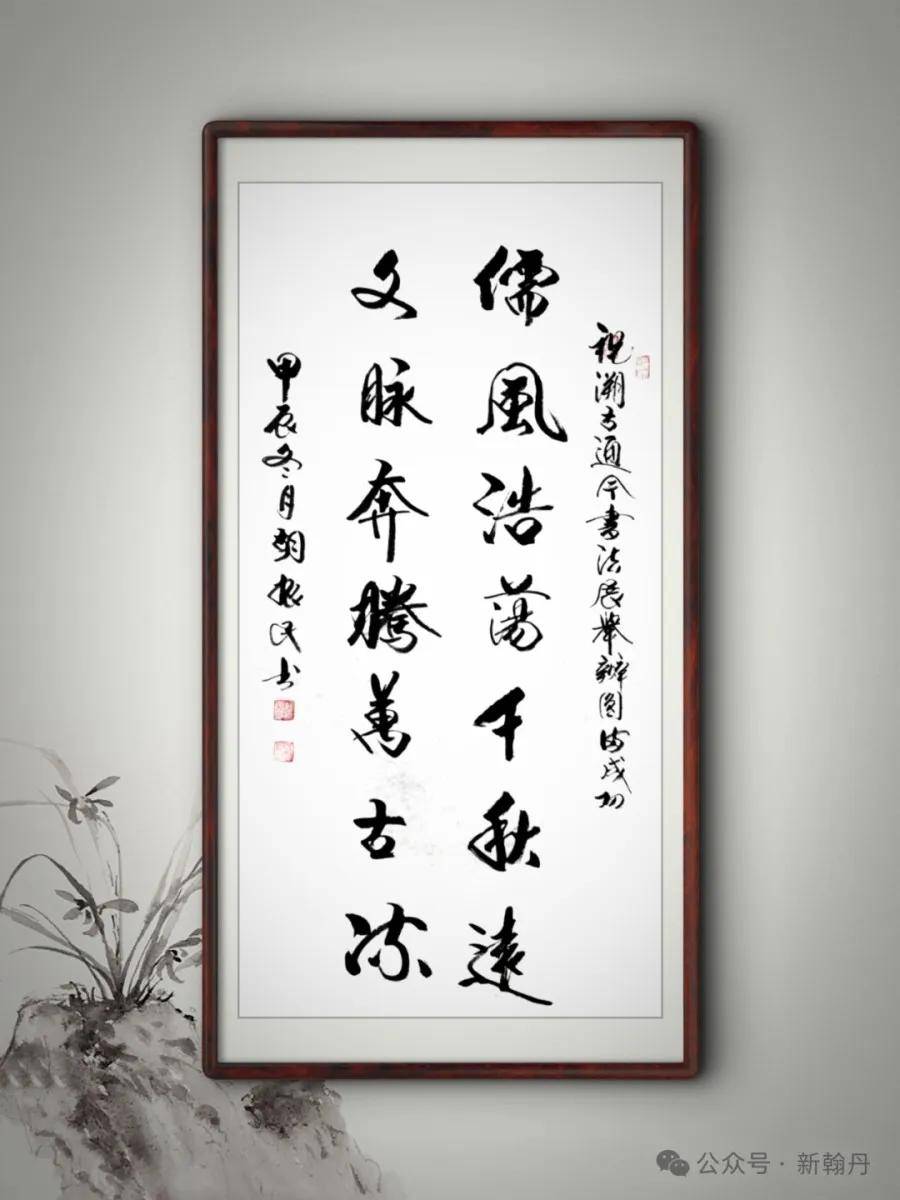 祝溯古通今書法展舉辦圓滿成功
儒風浩蕩千秋遠
文脉奔騰萬古流
甲辰冬月胡振民书
公众号·新翰丹